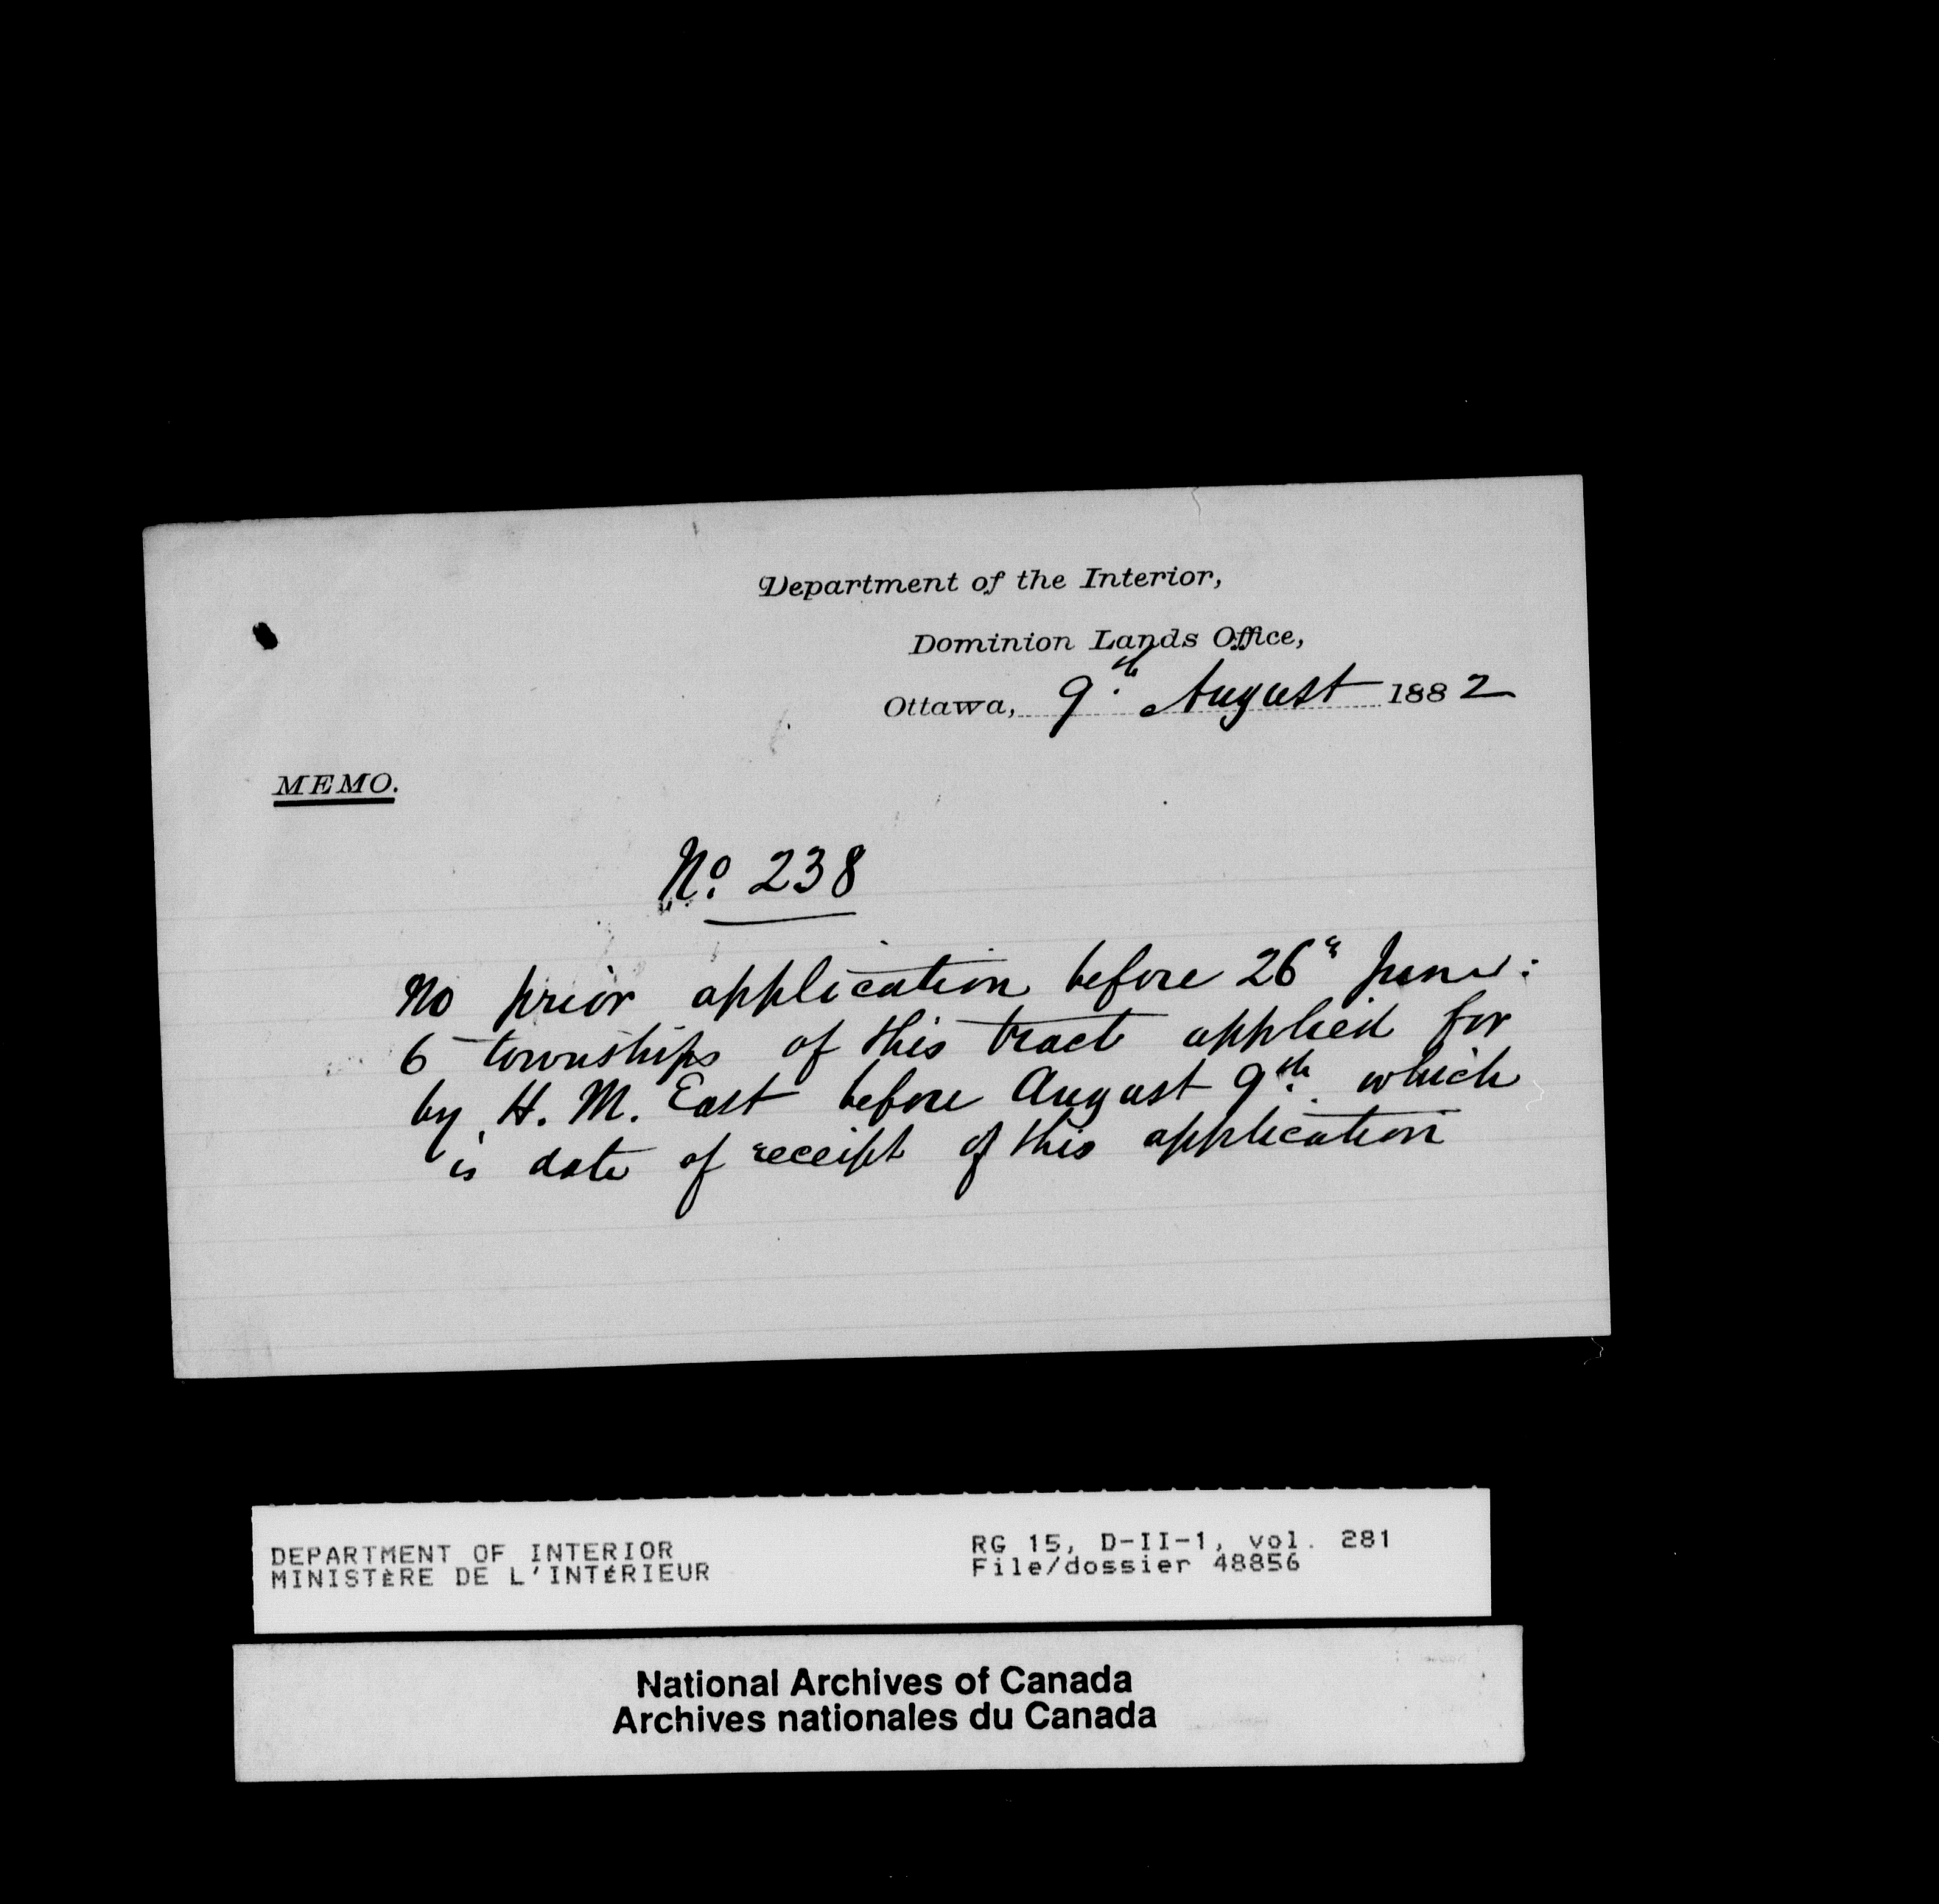 Department of the Interior,
Dominion Lands Office,
Ottawa, 9th August 1882
MEMO.
No. 238
No prior application before 26th June:
6 townships of this tract applied for
by H. M. East before August 9th which
is date of receipt of this application
DEPARTMENT OF INTERIOR
MINISTÈRE DE L'INTÉRIEUR
RG 15, D-II-1, vol. 281
File/dossier 48856
National Archives of Canada
Archives nationales du Canada